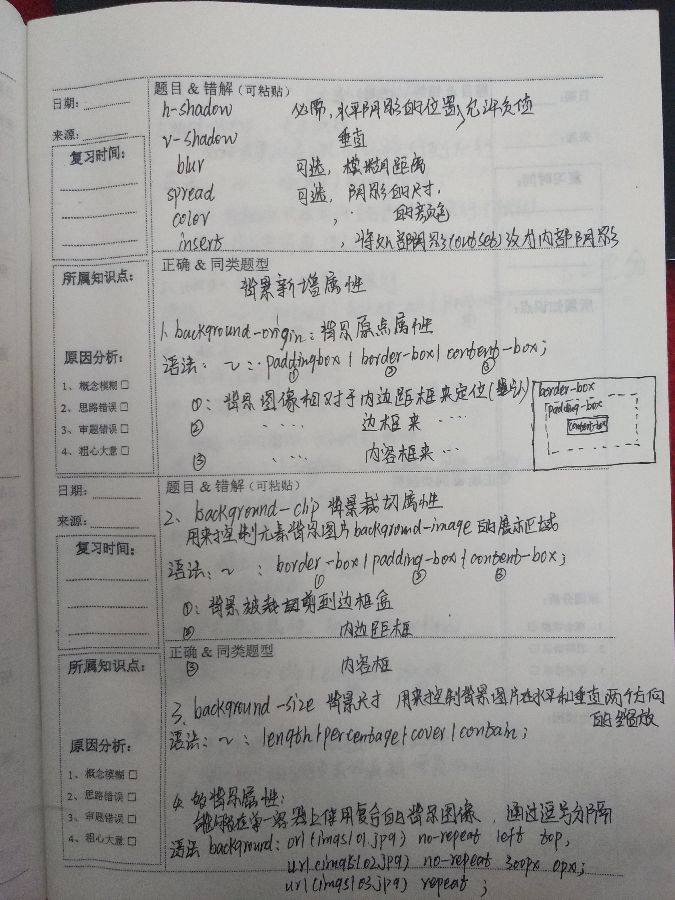 题目 & 错解(可粘贴)
日期:
h-shadow 必需,水平阴影的位置,允许负值
来源:
v-shadow 垂直
复习时间:
blur 可选,模糊距离
spread 可选,阴影的尺寸,
color , 的颜色
insert ,将外部阴影(outset)改为内部阴影
正确 & 同类题型
所属知识点:
背景新增属性
1、background-origin:背景原点属性
原因分析:
语法: ~:paddingbox | border-box | content-box;
① ② ③
1、概念模糊 □
2、思路错误 □
3、审题错误 □
4、粗心大意 □
①:背景图像相对于内边距框来定位(默认)
② 边框来 ...
③ 内容框来 ...
border-box
padding-box
content-box
题目 & 错解(可粘贴)
日期:
来源:
2、background-clip 背景裁切属性
用来控制元素背景图片background-image的展示区域
复习时间:
语法:~ : border-box | padding-box | content-box;
① ② ③
①:背景被裁切剪到边框盒
② 内边距框
正确 & 同类题型
③ 内容框
所属知识点:
3、background-size 背景尺寸 用来控制背景图片在水平和垂直两个方向
的缩放
语法:~:length | percentage | cover | contain;
原因分析:
1、概念模糊 □
2、思路错误 □
3、审题错误 □
4、粗心大意 □
4、多背景属性:
能够在单一容器上使用复合的背景图像,通过逗号分隔
语法 background:url(imgs/01.jpg) no-repeat left top,
url(imgs/02.jpg) no-repeat 300px 0px;
url(imgs/03.jpg) repeat ;